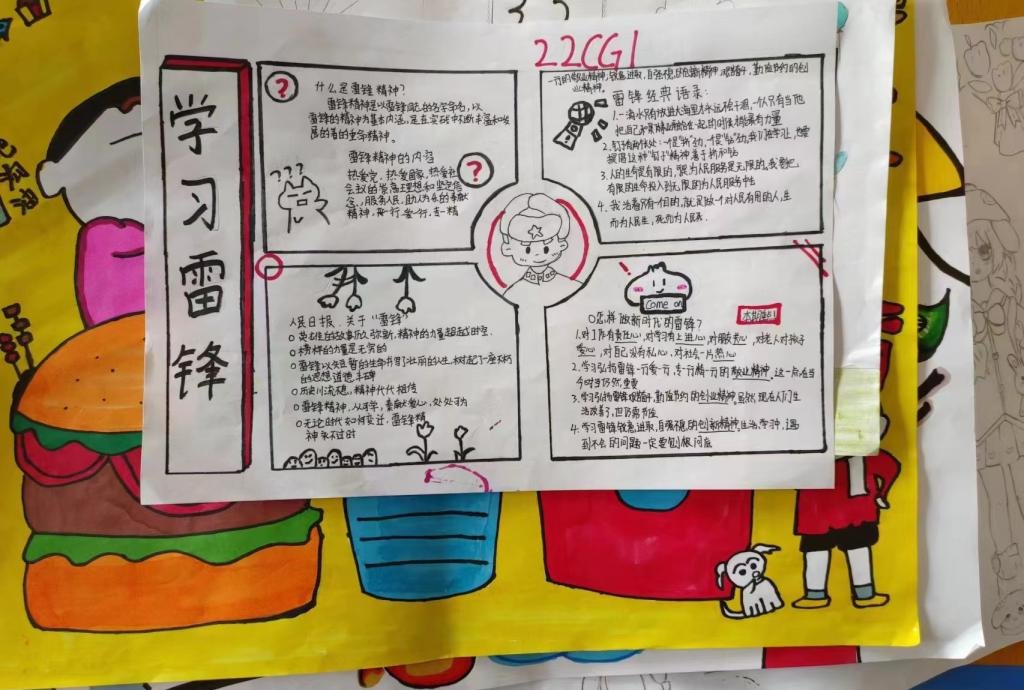 22CG1
学习雷锋
什么是雷锋精神?
雷锋精神是以雷锋同志的名字命名,以
雷锋的精神为基本内涵,是在实践中不断丰富和发
展的着的革命精神。
雷锋精神的内容
热爱党、热爱国家,热爱社
会主义的崇高理想和坚定信
念、服务人民,助人为乐的奉献
精神,干一行、爱一行、专一精
一行的敬业精神,锐意进取,自强不息的创新精神,艰苦奋斗,勤俭节约的创
业精神。
雷锋经典语录:
1.一滴水只有放进大海里才永远不会干涸,一个人只有当他
把自己和集体事业融合在一起的时候才能最有力量
2.钉子有两个长处:一个是"挤"劲,一个是"钻"劲,我们在学习上,也要
提倡这种"钉子"精神善于挤和钻
3.人的生命是有限的,可是为人民服务是无限的,我要把
有限的生命投入到无限的为人民服务中去
4.我活着只有一个目的,就是做一个对人民有用的人,生
而为人民生,死而为人民死.
人民日报.关于"雷锋"
○ 英雄的故事历久弥新,精神的力量超越时空.
○ 榜样的力量是无穷的
○ 雷锋以短暂的生命书写了壮丽的人生,树起了一座永恒
的思想道德丰碑
○ 历史川流不息,精神代代相传
○ 雷锋精神,人人可学,奉献爱心,处处可为
○ 无论时代如何变迁,雷锋精
神永不过时
Come on
○怎样做新时代的雷锋?
1.对工作有责任心,对学习有上进心,对朋友热心,对老人对孩子
爱心,对自己没有私心,对社会一片热心
2.学习弘扬雷锋干一行爱一行,专一行精一行的敬业精神.这一点在当
今时尤为重要
3.学习弘扬雷锋艰苦奋斗,勤俭节约的创业精神.虽然现在人们生
活改善了,但仍需节俭
4.学习雷锋锐意进取,自强不息的创新精神.生活、学习中,遇
到不会的问题一定要刨根问底